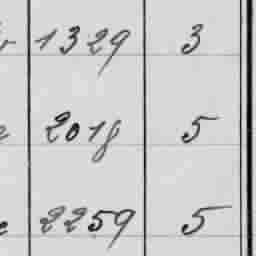 1329 3
2018 5
2259 5